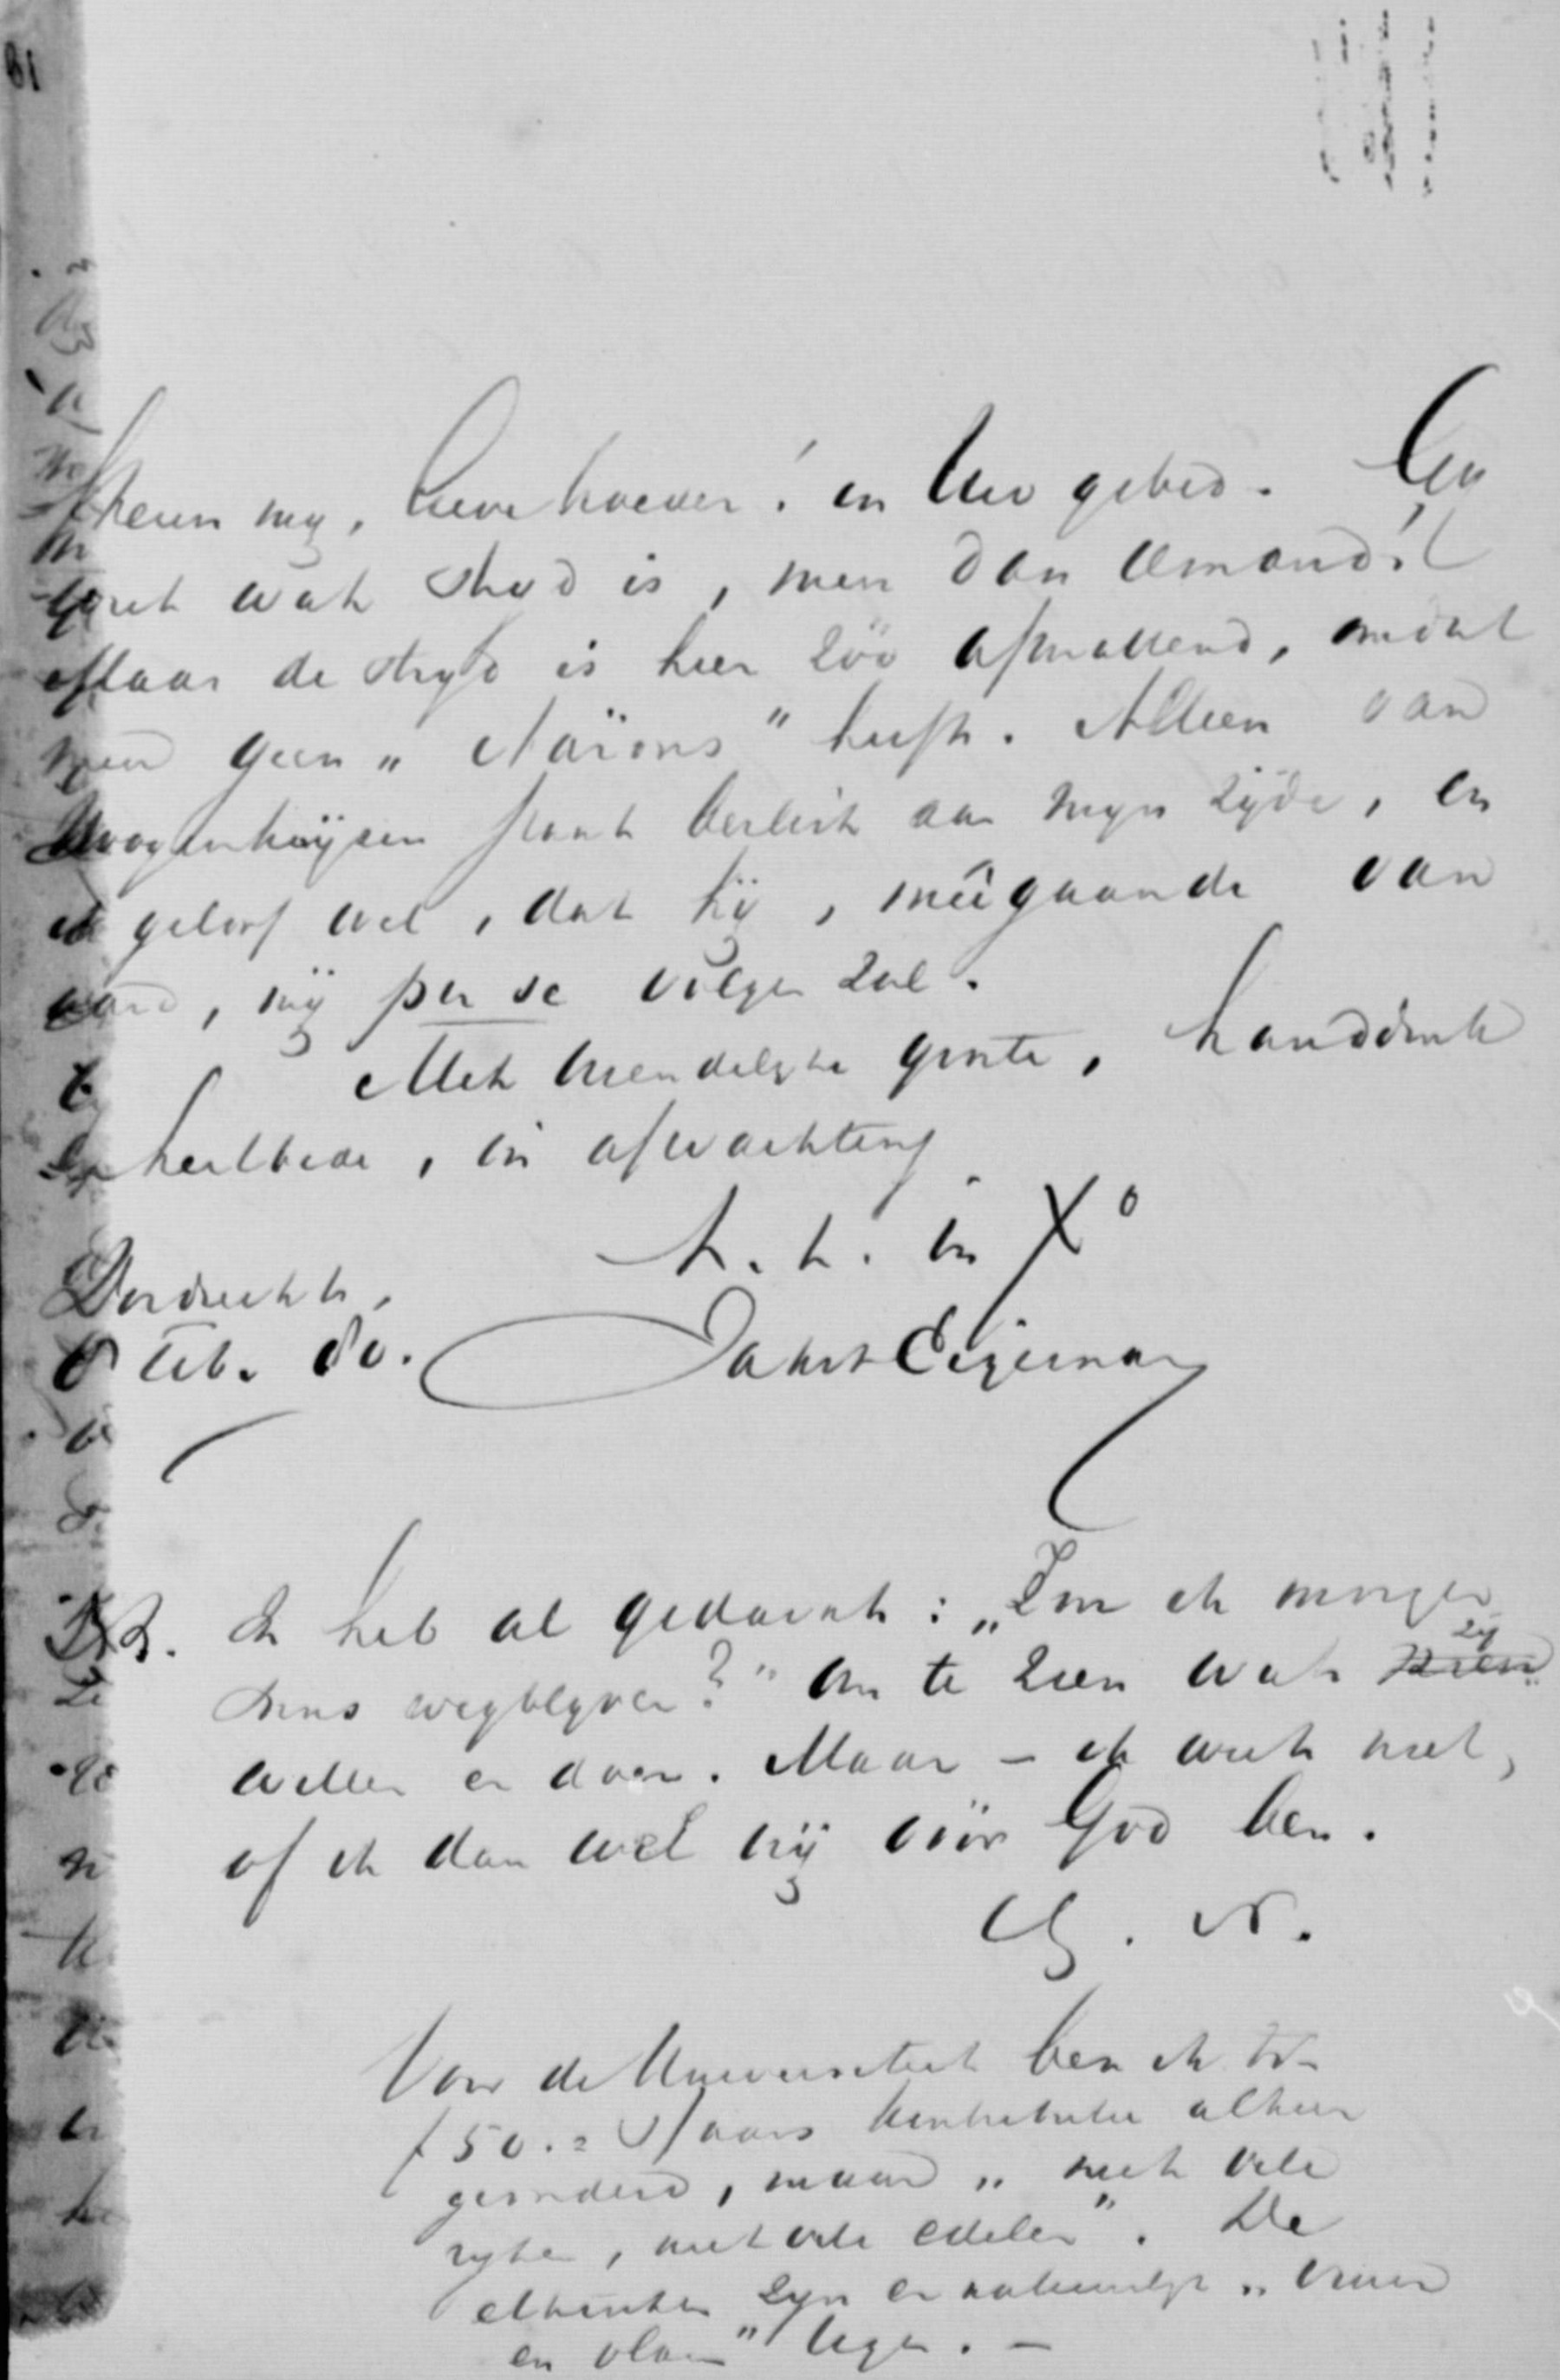 Steun mij, lieve broeder! in Uw gebed. Gij
weet wat strijd is, meer dan iemand!
Maar de strijd is hier zóó afmattend, omdat
men geen „Aärons" heeft. Alleen van
Hoogenhuijzen staat beslist aan mijn zijde, en
ik geloof wel, dat hij, meêgaande van
aard, mij per se volgen zal.
Met vriendelijke groete, handdruk
en heilbede, in afwachting
t. t. in Xo
Dordrecht,
Feb. 80. Jakob Eigeman
N.B. Ik heb al gedacht: „Zou ik morgen
eens wegblijven?" om te zien wat zij
willen en doen. Maar – ik weet niet,
of ik dan wel vrij vóór God ben.
Voor de Universiteit ben ik
f 50.= 's jaars contributie alhier
gevorderd, maar „niet vele
rijken, niet vele edelen". De
zijn er natuurlijk „vuur
en vlam" tegen. –